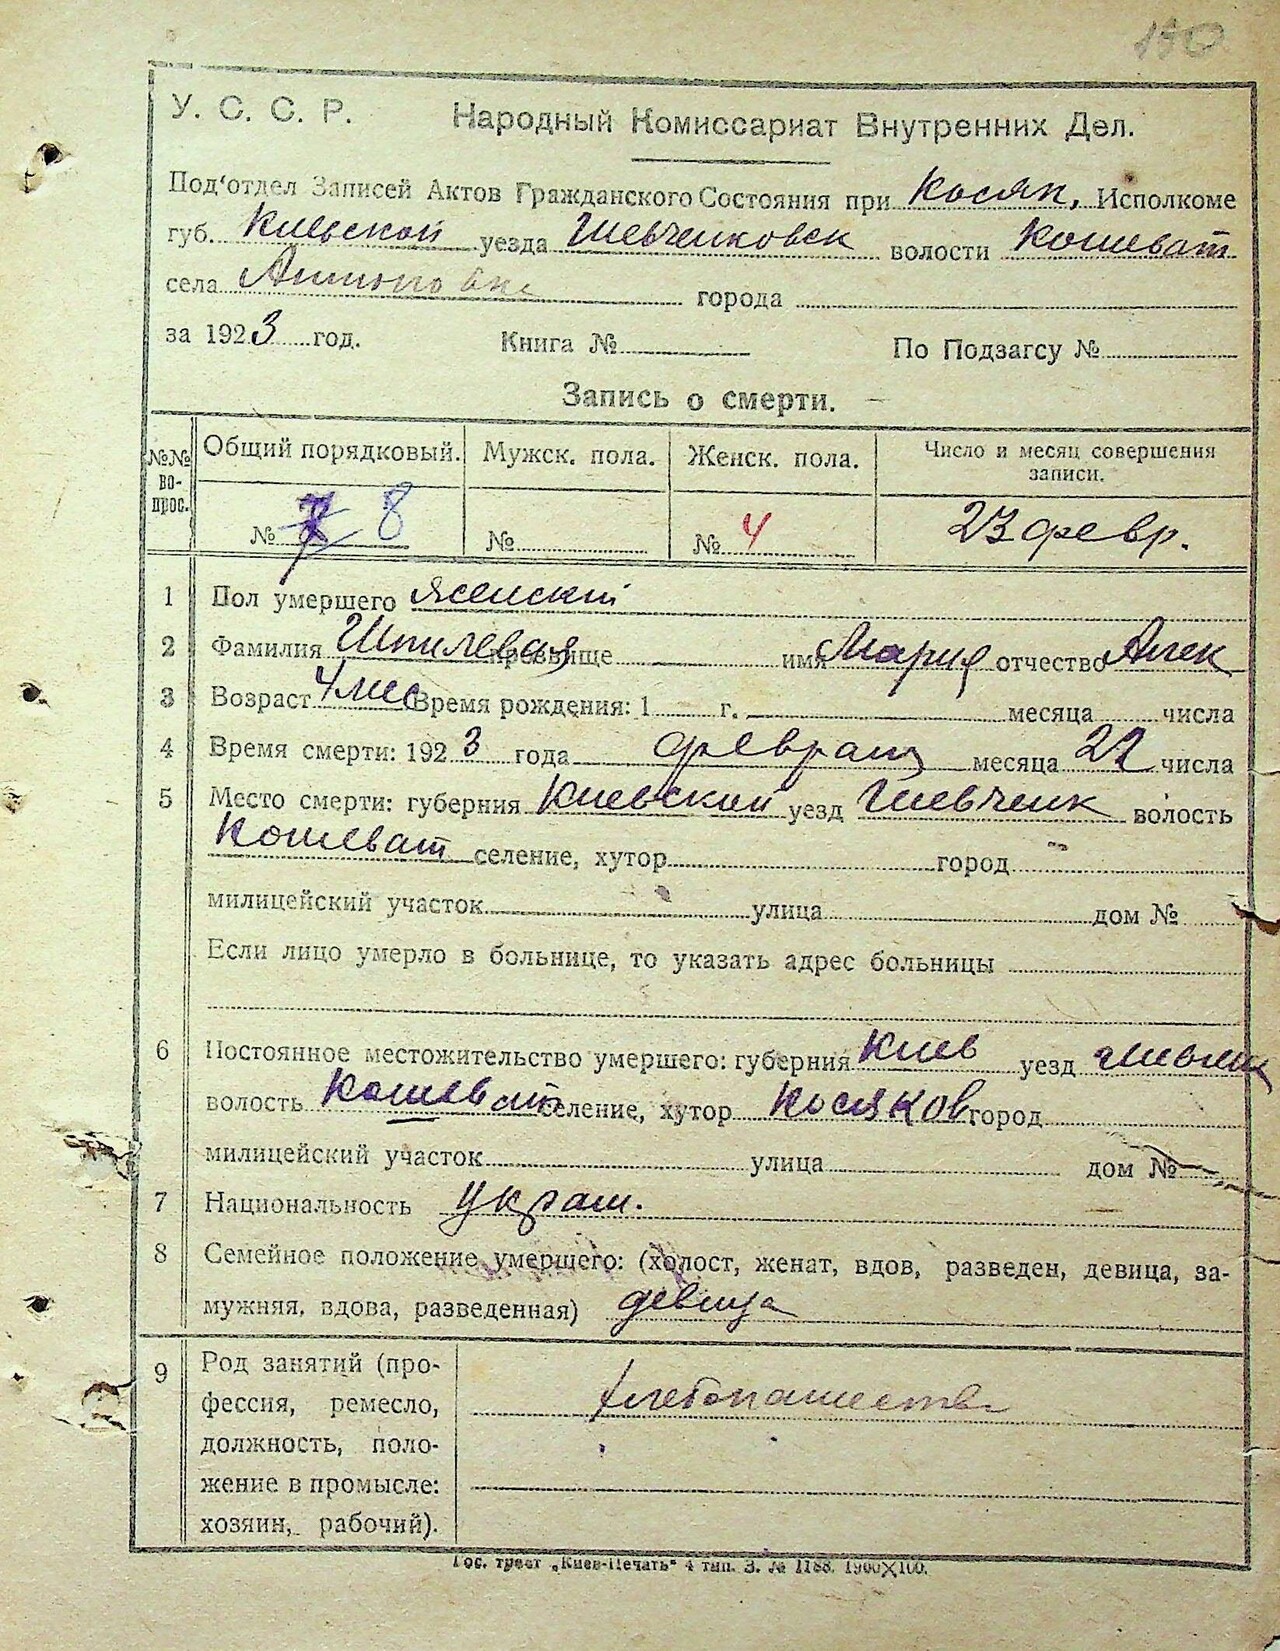 190
У. С. С. Р. Народный Комиссариат Внутренних Дел.
Под'отдел Записей Актов Гражданского Состояния при Косяк. Исполкоме
губ. Киевской уезда Шевченковск волости Кошеват
села Антоновке города
за 1923 год. Книга № По Подзагсу №
Запись о смерти.
№№ вопрос. Общий порядковый. Мужск. пола. Женск. пола. Число и месяц совершения записи.
№ 7 8 № № 4 23 февр.
1 Пол умершего женский
2 Фамилия Шпилевая прозвище имя Мария отчество Алек
3 Возраст 4 мес Время рождения: 1 г. месяца числа
4 Время смерти: 1923 года февраля месяца 22 числа
5 Место смерти: губерния Киевской уезд Шевченк волость
Кошеват селение, хутор город
милицейский участок улица дом №
Если лицо умерло в больнице, то указать адрес больницы
6 Постоянное местожительство умершего: губерния Киев уезд
волость Кошеват селение, хутор Косяков город
милицейский участок улица дом №
7 Национальность Украин.
8 Семейное положение умершего: (холост, женат, вдов, разведен, девица, за-
мужняя, вдова, разведенная) девица
9 Род занятий (про-
фессия, ремесло, хлебопашество
должность, поло-
жение в промысле:
хозяин, рабочий).
Гос. трест „Киев-Печать" 4 тип. З. № 1188. 1900X100.